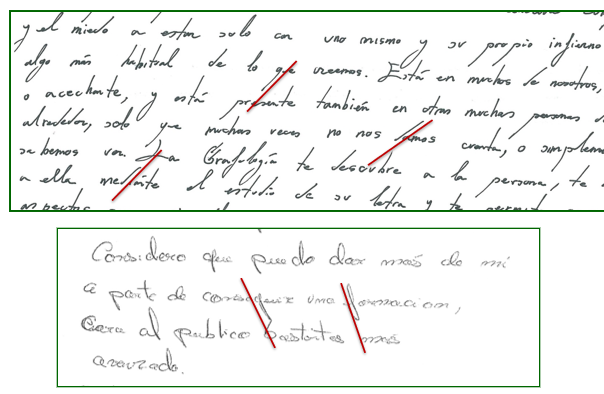 y el miedo a estar solo con uno mismo y su propio infierno
algo más habitual de lo que creemos. Está en muchos de nosotros,
o acechante, y está presente también en otras muchas personas
alrededor, solo que muchas veces no nos damos cuenta, o simpleme
sabemos ver. La Grafología te descubre a la persona, te
a ella mediante el estudio de su letra y te
aspectos
Considero que puedo dar más de mi
a parte de conseguir una formacion,
Cara al publico bastantes más
avanzado.